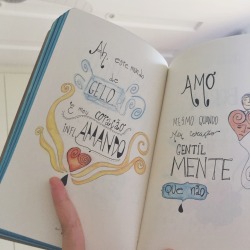 Ah, esse mundo
de
GELO
e meu
coração
infl
AMANDO
AMO
MESMO QUANDO
meu coração
GENTIL
MENTE
que não